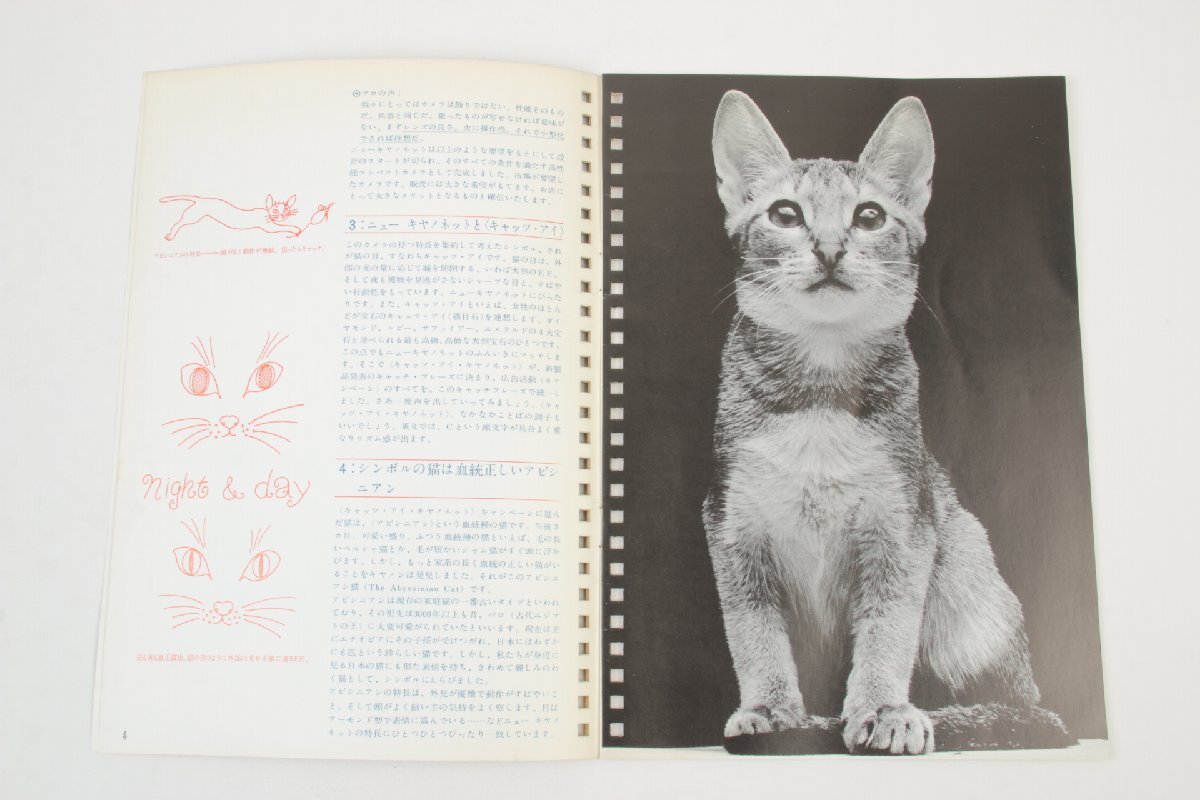 ◎プロの声:
我々にとってはカメラは飾りではない。性能そのもの
だ。兵器と同じだ。狙ったものが写せなければ意味が
ない。まずレンズの良さ。次に操作性。それで小型化
できれば理想だ。
ニューキヤノネットは以上のような要望をもとにして設
計のスタートが切られ、そのすべての条件を満たす高性
能コンパクトカメラとして完成しました。市場が要望し
たカメラです。販売には大きな希望がもてます。お店に
とって大きなメリットとなるものと確信いたします。
3:ニュー キヤノネットと〈キャッツ・アイ〉
このカメラの持つ特長を集約して考えたシンボル、それ
が猫の目、すなわちキャッツ・アイです。猫の目は、外
部の光の量に応じて瞳を開閉する、いわば天然のEE。
そして夜も獲物を見逃がさないシャープな目と、すばや
い行動性をもっています。ニューキヤノネットにぴった
りです。また、キャッツ・アイといえば、女性のほとん
どが宝石のキャッツ・アイ(猫目石)を連想します。ダイ
ヤモンド、ルビー、サファイアー、エメラルドの4大宝
石と並べられる最も高級、高価な天然宝石のひとつです。
この点でもニューキヤノネットのふんいきにマッチしま
す。そこで〈キャッツ・アイ・キヤノネット〉が、新製
品発表のキャッチ・フレーズに決まり、広告活動(キャ
ンペーン)のすべてを、このキャッチフレーズで統一し
ました。さあ一度声を出していってみましょう。〈キャ
ッツ・アイ・キヤノネット〉。なかなかことばの調子も
いいでしょう。英文では、Cという頭文字が具合よく重
なりリズム感が出ます。
4:シンボルの猫は血統正しいアビシ
ニアン
〈キャッツ・アイ・キヤノネット〉キャンペーンに選ん
だ猫は、〈アビシニアン〉という血統種の猫です。生後3
カ月。可愛い盛り。ふつう血統種の猫といえば、毛の長
いペルシャ猫とか、毛が短かいシャム猫がすぐ頭に浮か
びます。しかし、もっと家系の長く血統の正しい猫がい
ることをキヤノンは発見しました。それがこのアビシニ
アン猫(The Abyssinian Cat)です。
アビシニアンは現存の家庭猫の一番古いタイプといわれ
ており、その祖先は3000年以上も昔、パロ(古代エジプ
トの王)に大変可愛がられていたといいます。現在は主
にエチオピアにその子孫が受けつがれ、日本にはわずか
にも匹という珍らしい猫です。しかし、私たちが身近に
見る日本の猫にも似た表情を持ち、きわめて親しみのわ
く猫として、シンボルにえらびました。
アビシニアンの特長は、外見が優雅で動作がすばやいこ
と、そして頭がよく飼い主の気持をよく察します。目は
アーモンド型で表情に富んでいる……などニュー キヤノ
ネットの特長にひとつひとつぴったり一致しています。
アビシニアンの特長――頭がよく動作が敏捷、狙ったらキャッチ。
night & day
昼も夜も適正露出、猫の目のように外部の光を正確に測るEE。
4